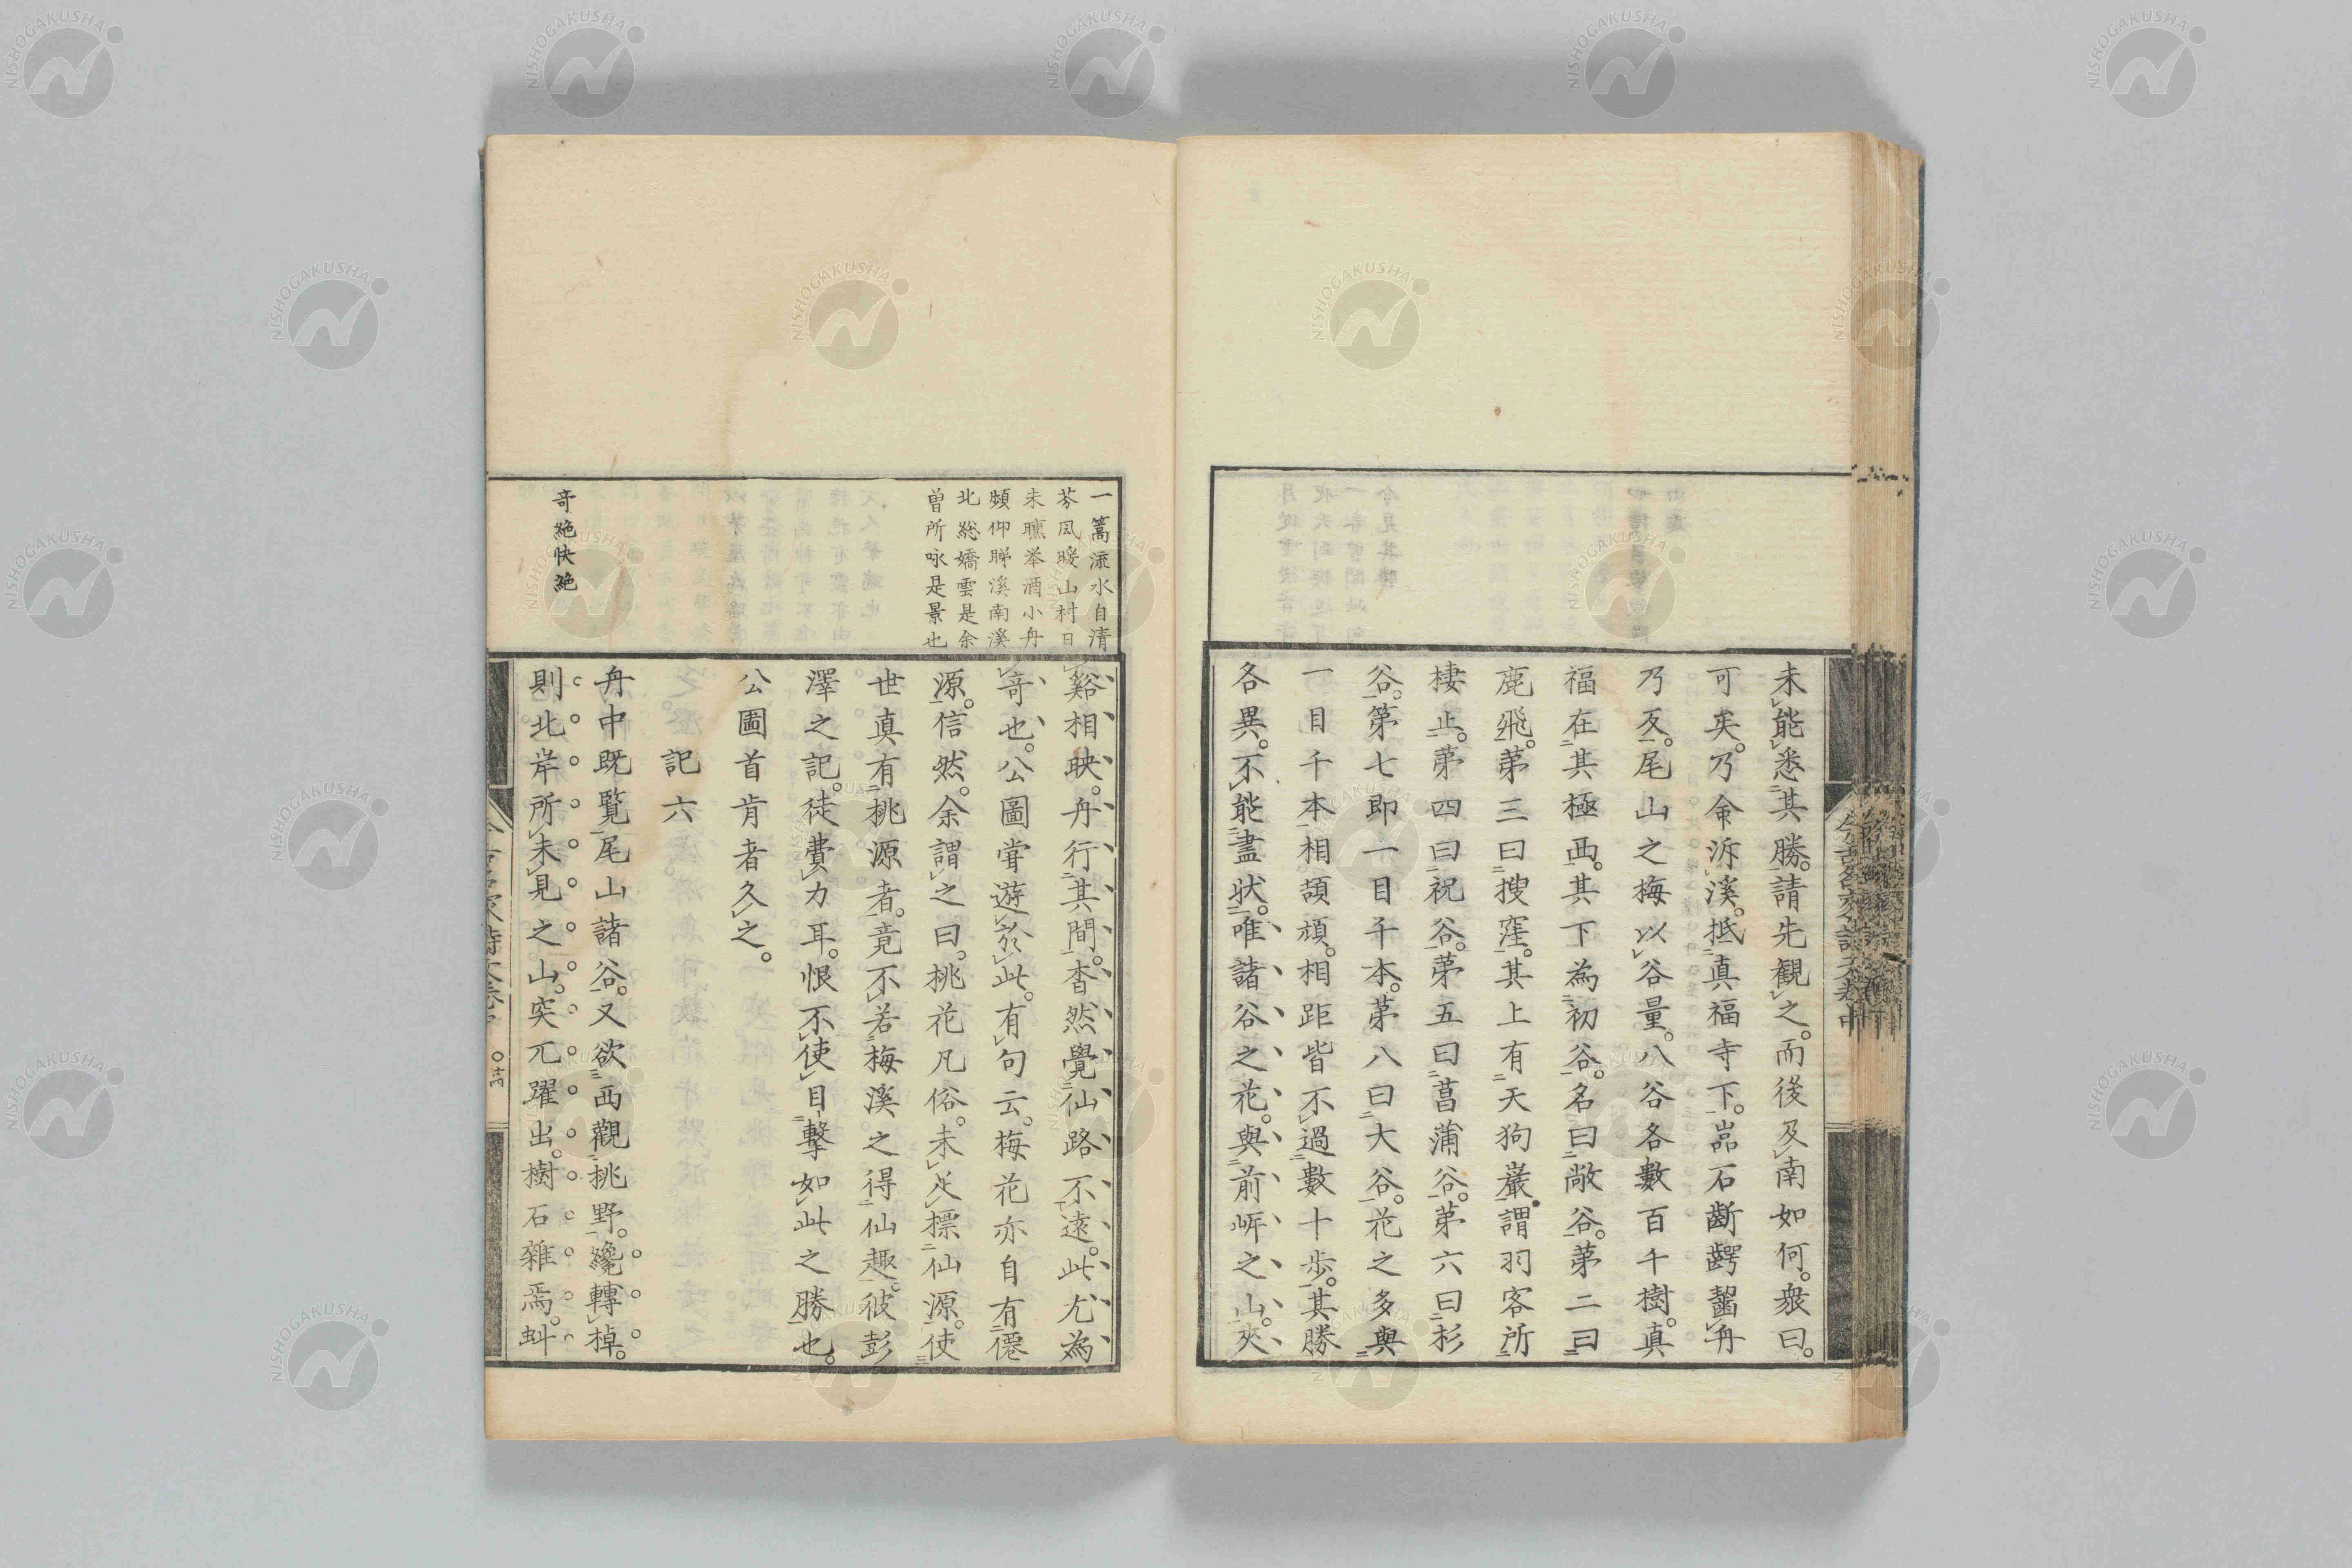 未能悉其勝。請先観之。而後及南如何。衆曰。
可矣。乃命泝溪。抵真福寺下。嵓石斷齶齧舟
乃反。尾山之梅以谷量。八谷各數百千樹。真
福在其極西。其下為初谷。名曰敞谷。第二曰
鹿飛。第三曰搜窪。其上有天狗巖。謂羽客所
棲止。第四曰祝谷。第五曰菖蒲谷。第六曰杉
谷。第七即一目千本。第八曰大谷。花之多與
一目千本相頡頏。相距皆不過數十歩。其勝
各異。不能盡狀。唯諸谷之花。與前岼之山。夾
今古名家詩文卷中
一篙添水自清
芬風暖山村日
未曛挙酒小舟
頻仰睇溪南溪
北総嬌雲是余
曽所咏是景也
谿相映。舟行其間。杳然覺仙路不遠。此尤為
奇也。公圖嘗遊於此。有句云。梅花亦自有僊
源。信然。余謂之曰。桃花凡俗。未足標仙源。使
世真有桃源者。竟不若梅溪之得仙趣。彼彭
澤之記。徒費力耳。恨不使目擊如此之勝也。
公圖首肯者久之。
記六
奇絶快絶
舟中既覧尾山諸谷。又欲西觀桃野。纔轉棹。
則北岸所未見之山。突兀躍出。樹石雜焉。虯
NISHOGAKUSHA